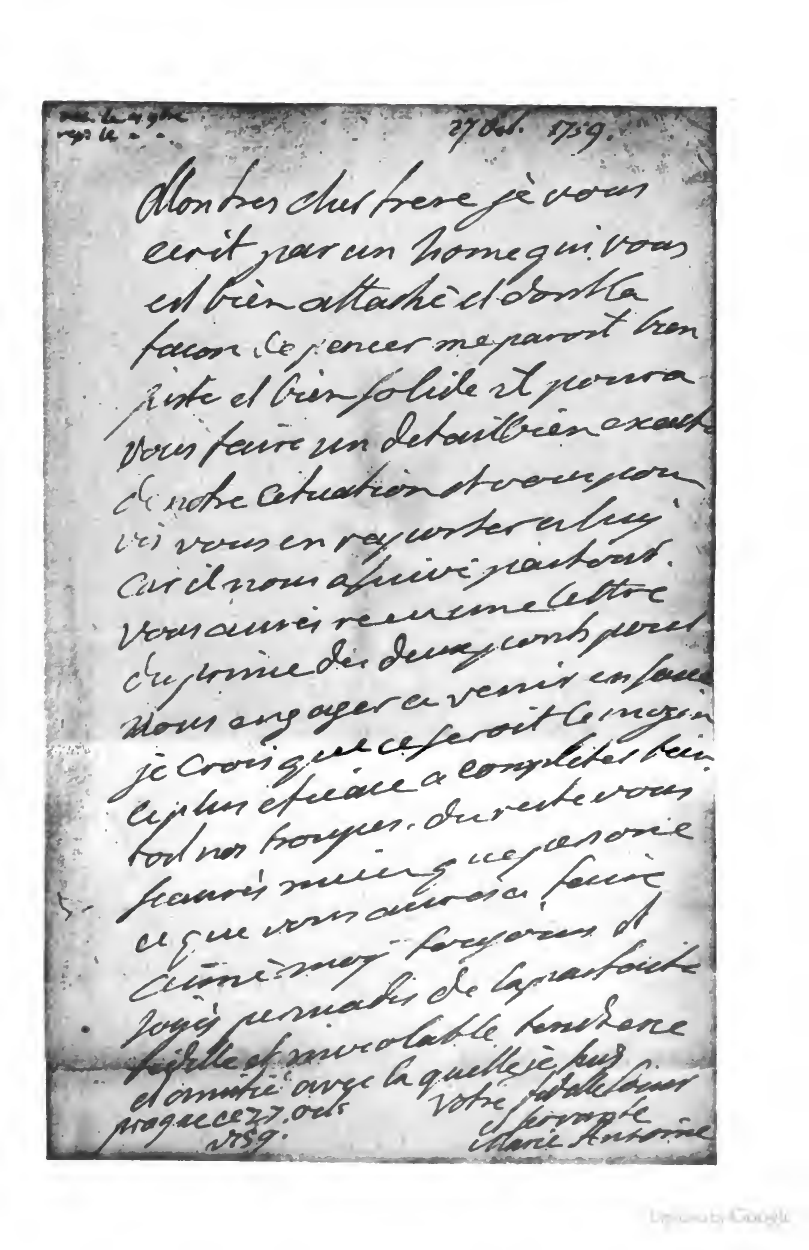 27 Oct. 1759.
Mon tres cher frere je vous
ecrit par un home qui vous
est bien attaché et dont la
facon de pencer me paroit bien
juste et bien solide il poura
vous faire un detail bien exacte
de notre cituation et vous pou
vés vous en raporter a luy
car il nous a suivi partout.
vous aurés recu une lettre
du prince des deux ponts pour
vous engager a venir en
je crois que ce seroit le moyen
le plus eficace a completer bien
tod nos troupes. du reste vous
scaurés mieux que persone
ce que vous aurés a faire
aimé moy toujours et
soyés persuadés de la parfaite
fidelle et inviolable tendresse
et amitié avec laquelle je suis
prague ce 27. oct: votre fidelle soeur
1759. et servante
Marie Antoine
Digitized by Google